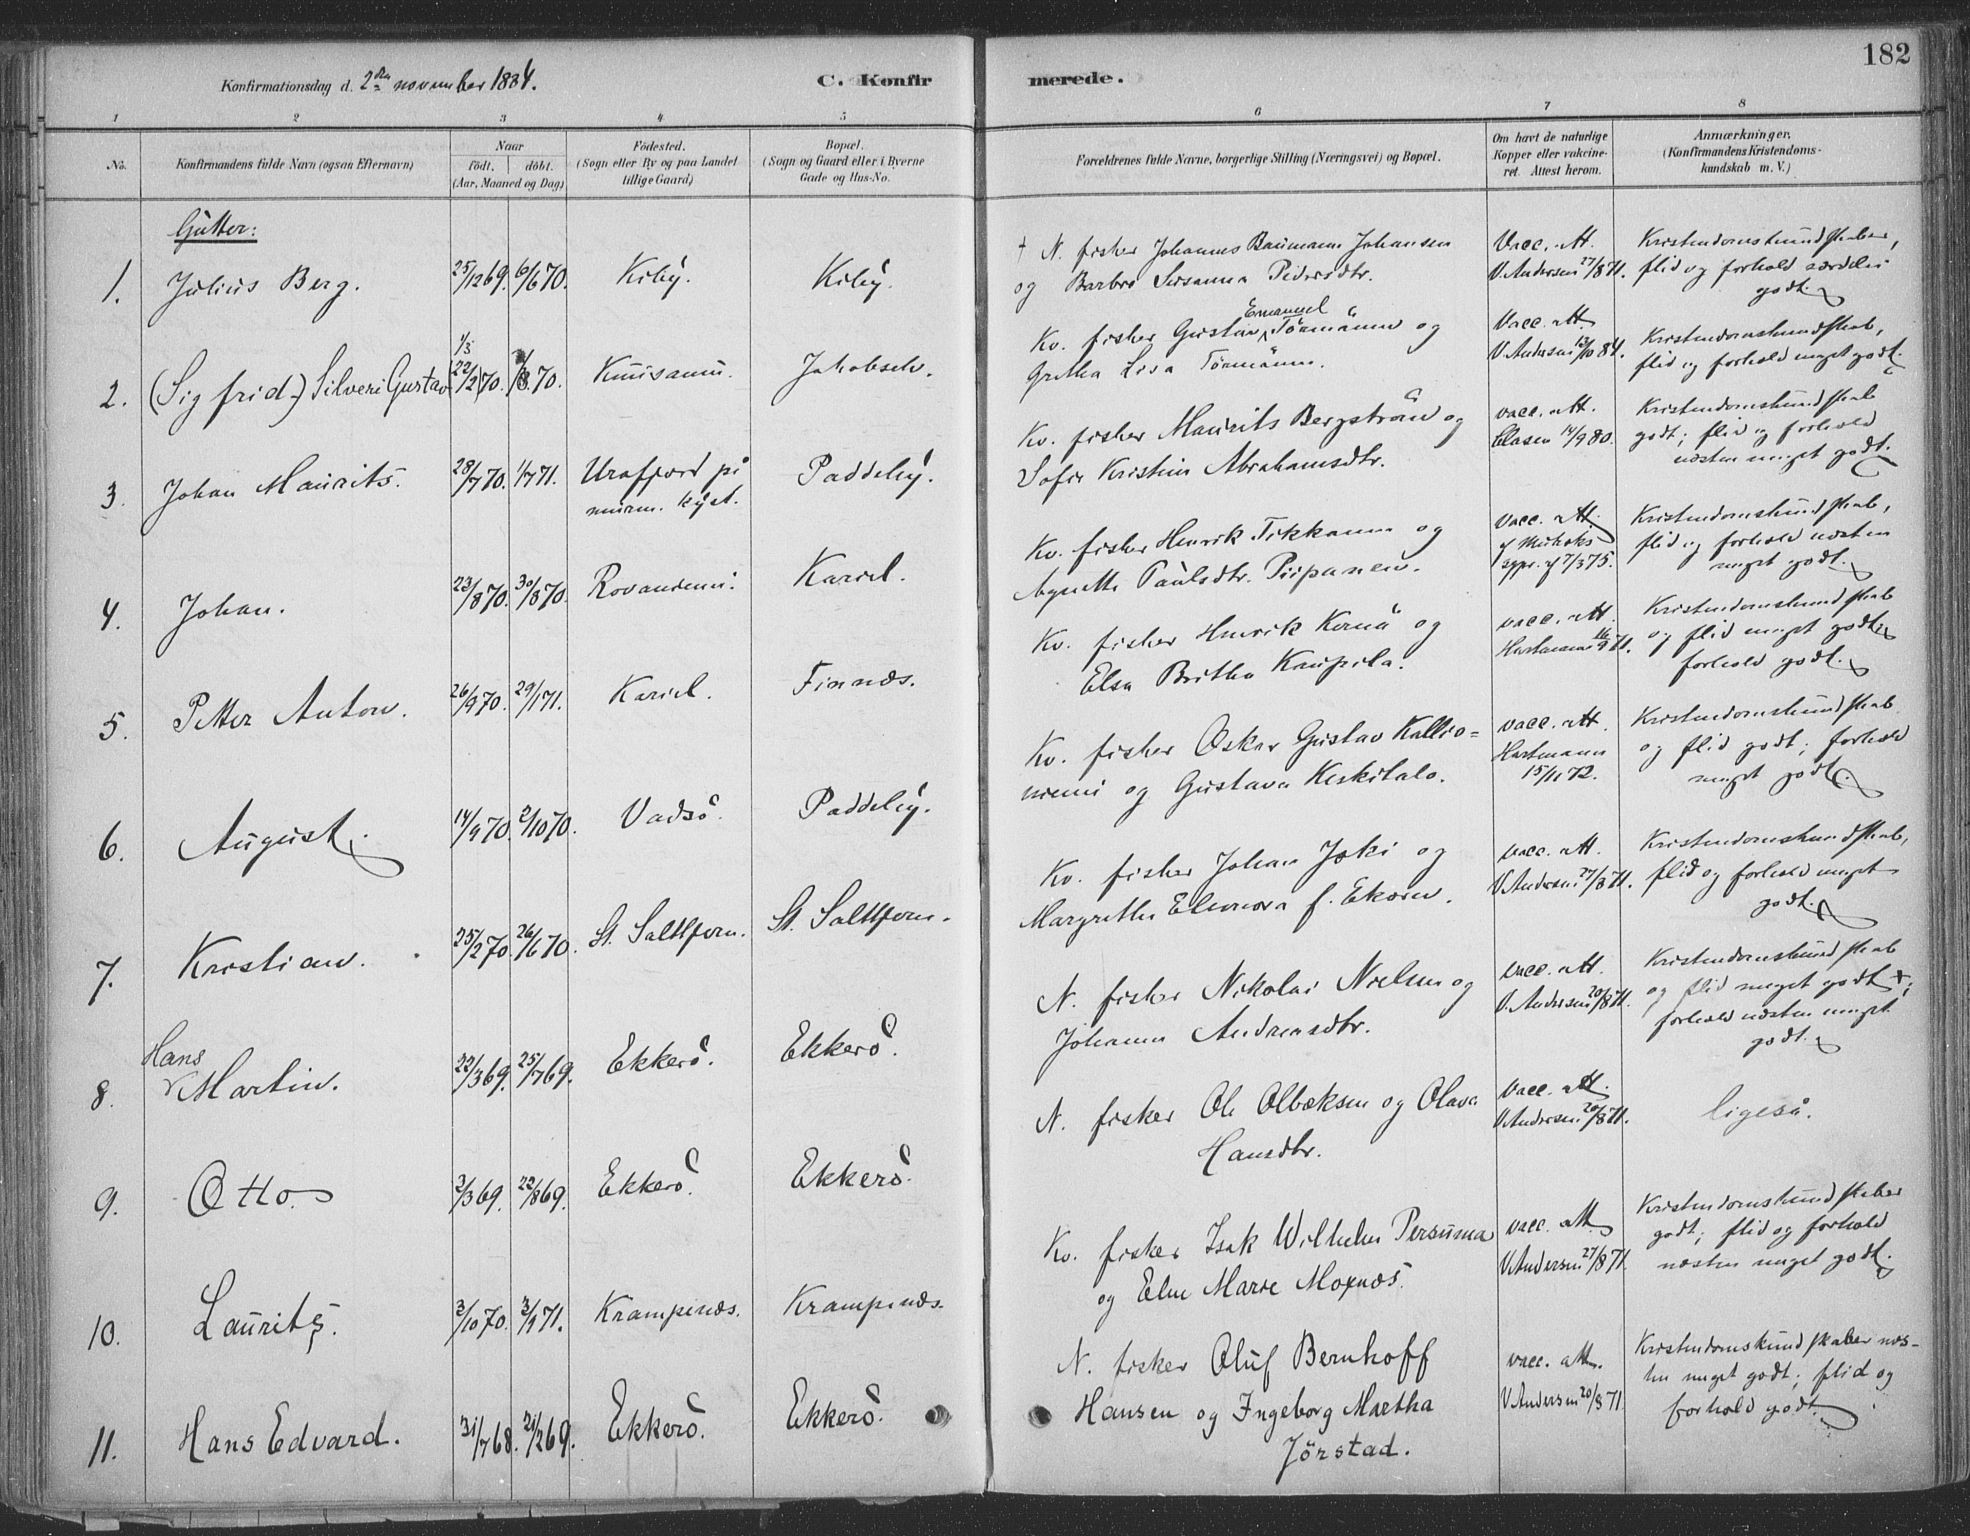 182
Konfirmationsdag d. 2den november 1884.
C. Konfirmerede.
1 2 3 4 5 6 7 8
No.
Konfirmandens fulde Navn (ogsaa Efternavn)
Naar
födt. döbt.
(Aar, Maaned og Dag)
Födested.
(Sogn eller By og paa Landet
tillige Gaard)
Bopæl.
(Sogn og Gaard eller i Byerne
Gade og Hus-No.
Forældrenes fulde Navne, borgerlige Stilling (Næringsvei) og Bopæl.
Om havt de naturlige
Kopper eller vakcine-
ret. Attest herom.
Anmærkninger.
(Konfirmandens Kristendoms-
kundskab m. V.)
Gutter:
1. Julius Berg. 25/12 69. 6/6 70. Kiby. Kiby.
† N. fisker Johannes Baumann Johansen
og Barbro Susanna Pedersdtr.
Vacc. att.
V. Andersen 27/8 71.
Kristendomskundskaber,
flid og forhold særdeles
godt.
2. (Sigfrid) Silveri Gustav
1/3
(22/2) 70. /8 70. Kuusamu. Jakobselv.
Kv. fisker Gustav Emanuel Törmänen og
Gretha Lisa Törmänen.
Vacc. att.
V. Andersen 13/10 84.
Kristendomskundskab,
flid og forhold meget godt.
3. Johan Maurits. 28/7 70. 1/7 71. Urafjord på
murm. kyst. Paddeby.
Kv. fisker Maurits Bergström og
Sofie Kristine Abrahamsdtr.
vacc. att.
Clasen 14/9 80.
Kristendomskundskab
godt; flid og forhold
næsten meget godt.
4. Johan. 23/8 70. 30/8 70. Rovaniemi. Kariel.
Kv. fisker Henrik Tikkanen og
Agnethe Paulsdtr. Piipanen.
vacc. att.
7/3 75.
Kristendomskundskab,
flid og forhold næsten
meget godt.
5. Petter Anton. 26/9 70. 29/1 71. Kariel. Finnæs.
Kv. fisker Henrik Kernä og
Elsa Britha Kaupila.
vacc. att.
Hartmann 16/9 71.
Kristendomskundskab
og flid meget godt,
forhold godt.
6. August. 14/9 70. 2/10 70. Vadsö. Paddeby.
Kv. fisker Oskar Gustav Kallio-
niemi og Gustava Keskitalo.
vacc. att.
Hartmann
15/11 72.
Kristendomskundskab
og flid godt; forhold
meget godt.
7. Kristian. 25/2 70. 26/6 70. St. Salttjern. St. Salttjern.
Kv. fisker Johan Joki og
Margrethe Eleonora f. Ekorn.
vacc. att.
V. Andersen 27/8 71.
Kristendomskundskab,
flid og forhold meget
godt.
8. Hans
Martin. 22/3 69. 25/7 69. Ekkerö. Ekkerö.
N. fisker Nikolai Nielsen og
Johanna Andreasdtr.
vacc. att.
V. Andersen 20/8 71.
Kristendomskundskab
og flid meget godt +;
forhold næsten meget
godt.
9. Otto. 2/3 69. 22/8 69. Ekkerö. Ekkerö.
N. fisker Ole Olbæksen og Olava
Hansdtr.
vacc. att.
V. Andersen 20/8 71.
ligeså.
10. Laurits. 2/10 70. 3/9 71. Krampenæs. Krampenæs.
Kv. fisker Isak Wilhelm Persuma
og Elen Marie Moxnæs.
vacc. att.
V. Andersen 27/8 71.
Kristendomskundskaber
godt; flid og forhold
næsten meget godt.
11. Hans Edvard. 31/7 68. 21/2 69. Ekkerö. Ekkerö.
N. fisker Oluf Bernhoff
Hansen og Ingeborg Martha
Jörstad.
vacc. att.
V. Andersen 20/8 71.
Kristendomskundskaber næs-
ten meget godt; flid og
forhold godt.